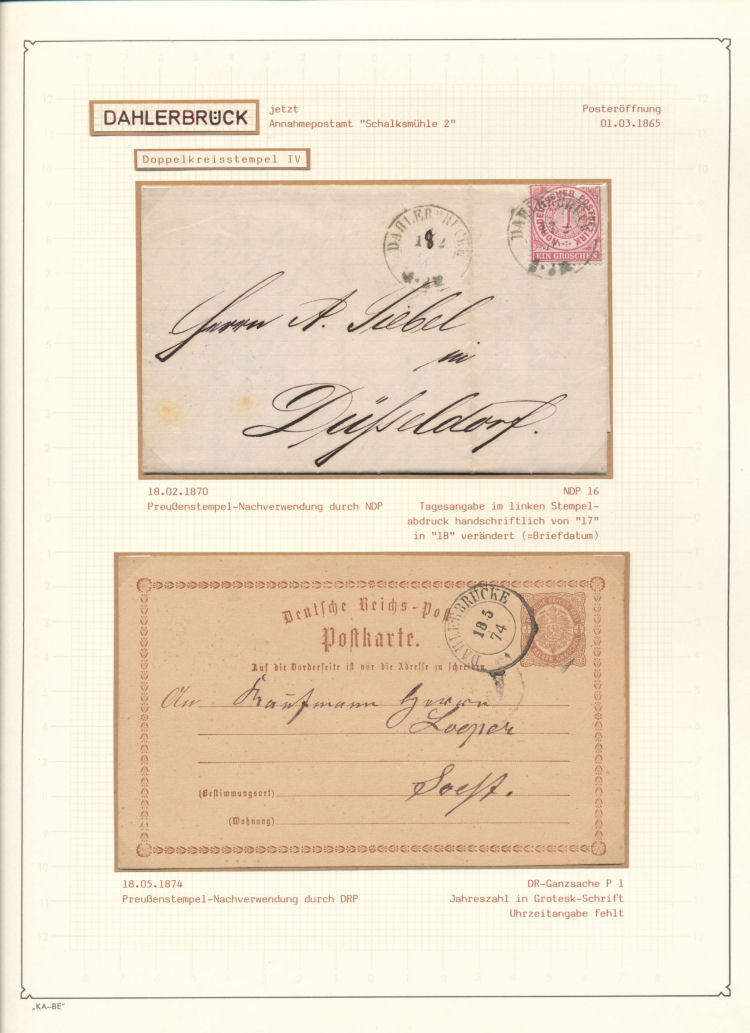 DAHLERBRÜCK
jetzt
Annahmepostamt "Schalksmühle 2"
Posteröffnung
01.03.1865
Doppelkreisstempel IV
DAHLERBRÜCKE
18 2
DAHLERBRÜCKE
NORDDEUTSCHER POSTBEZIRK
1
EIN GROSCHEN
Herrn A. Siebel
in
Düsseldorf.
18.02.1870
Preußenstempel-Nachverwendung durch NDP
NDP 16
Tagesangabe im linken Stempel-
abdruck handschriftlich von "17"
in "18" verändert (=Briefdatum)
Deutsche Reichs-Post
Postkarte.
DAHLERBRÜCKE
18 5
74
Auf die Vorderseite ist nur die Adresse zu schreiben.
An Kaufmann Herrn
Looper
(Bestimmungsort) Soest.
(Wohnung)
18.05.1874
Preußenstempel-Nachverwendung durch DRP
DR-Ganzsache P 1
Jahreszahl in Grotesk-Schrift
Uhrzeitangabe fehlt
„KA-BE"